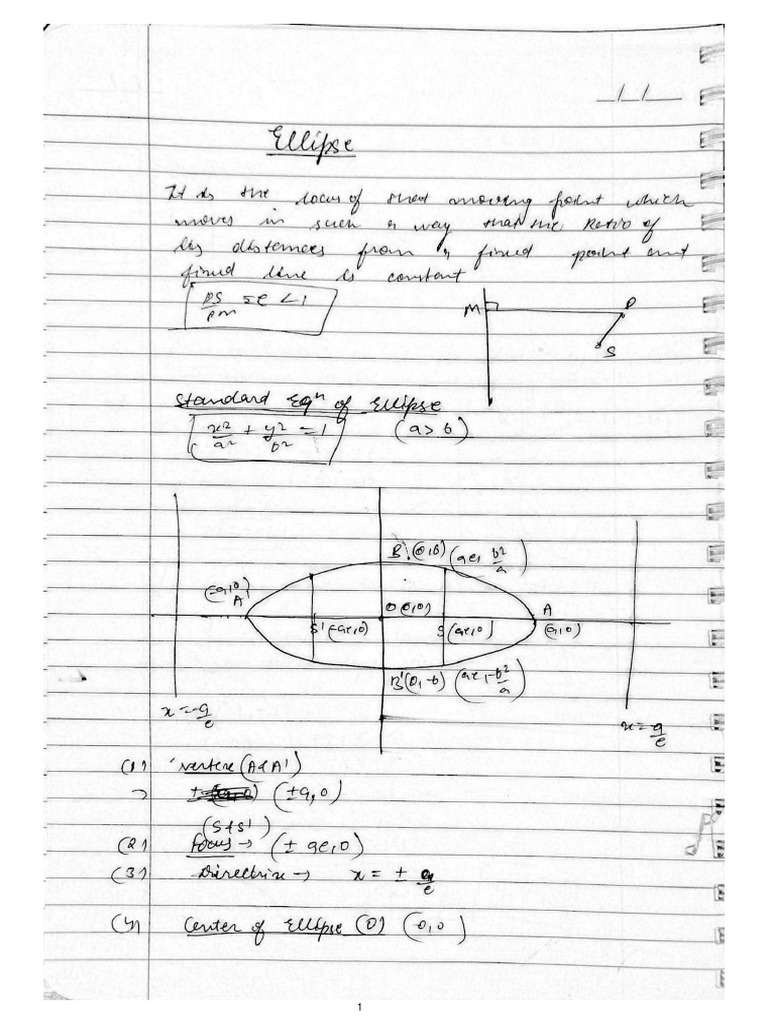 _/_/_
Ellipse
It is the locus of that moving point which
moves in such a way that the Ratio of
its distances from a fixed point and
fixed line is constant
PS/PM = e < 1
M P
S
Standard Eqⁿ of Ellipse
x²/a² + y²/b² = 1 (a > b)
B (0,b) (ae, b²/a)
(-a,0)
A' O(0,0) A
S'(-ae,0) S(ae,0) (a,0)
B'(0,-b) (ae, -b²/a)
x = -a/e x = a/e
(1) vertex (A & A')
(±a,0)
(S & S')
(2) focus → (± ae,0)
(3) Directrix → x = ± a/e
(4) Center of Ellipse (O) (0,0)
1